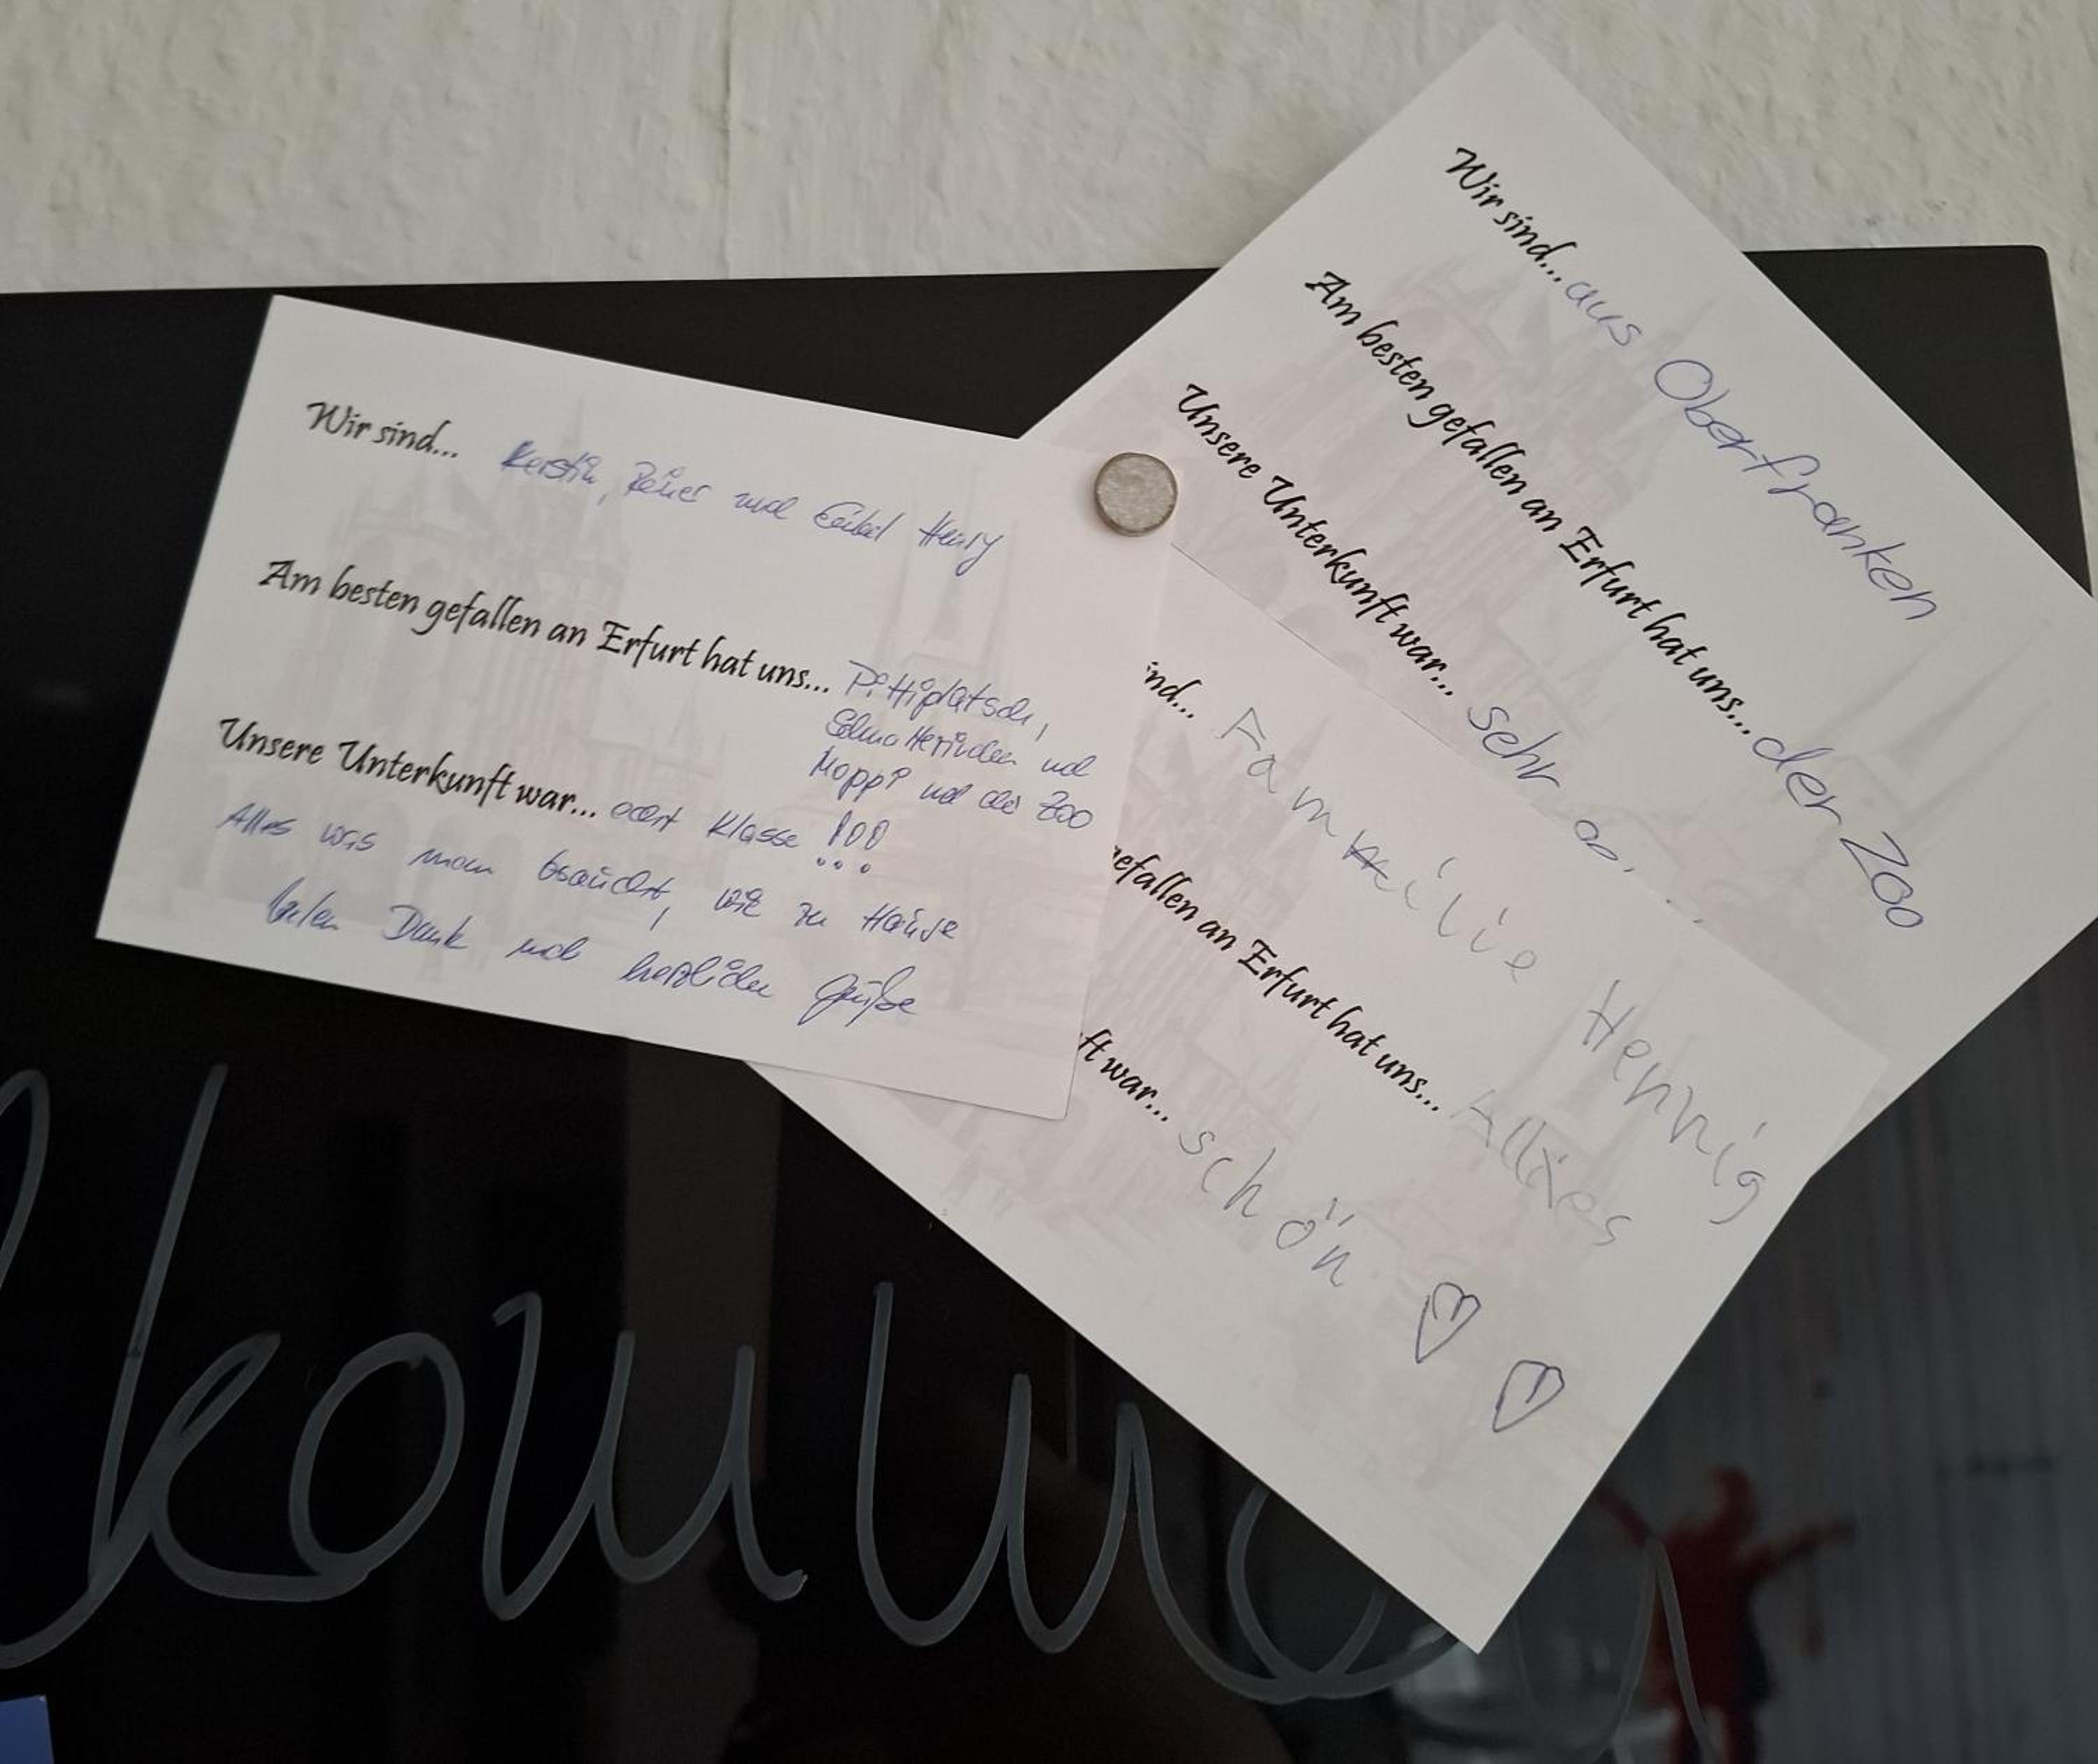 Wir sind... Kerstin, Reiner und Enkel Henry
Am besten gefallen an Erfurt hat uns... Pittiplatsch,
Schnatterinchen und
Moppi und der Zoo
Unsere Unterkunft war... echt Klasse !!!
Alles was man braucht, wie zu Hause
Vielen Dank und herzliche Grüße
Wir sind... aus Oberfranken
Am besten gefallen an Erfurt hat uns... der Zoo
Unsere Unterkunft war... sehr
ind... Familie Hennig
gefallen an Erfurt hat uns... Alles
ft war... schön
lkommen